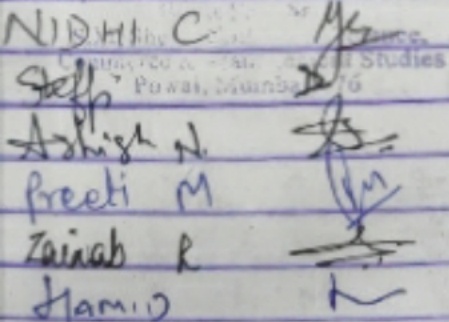 NIDHI C
Steffi
Ashish N.
Preeti M
Zainab R
Hamid
Studies
Powai, Mumbai 76